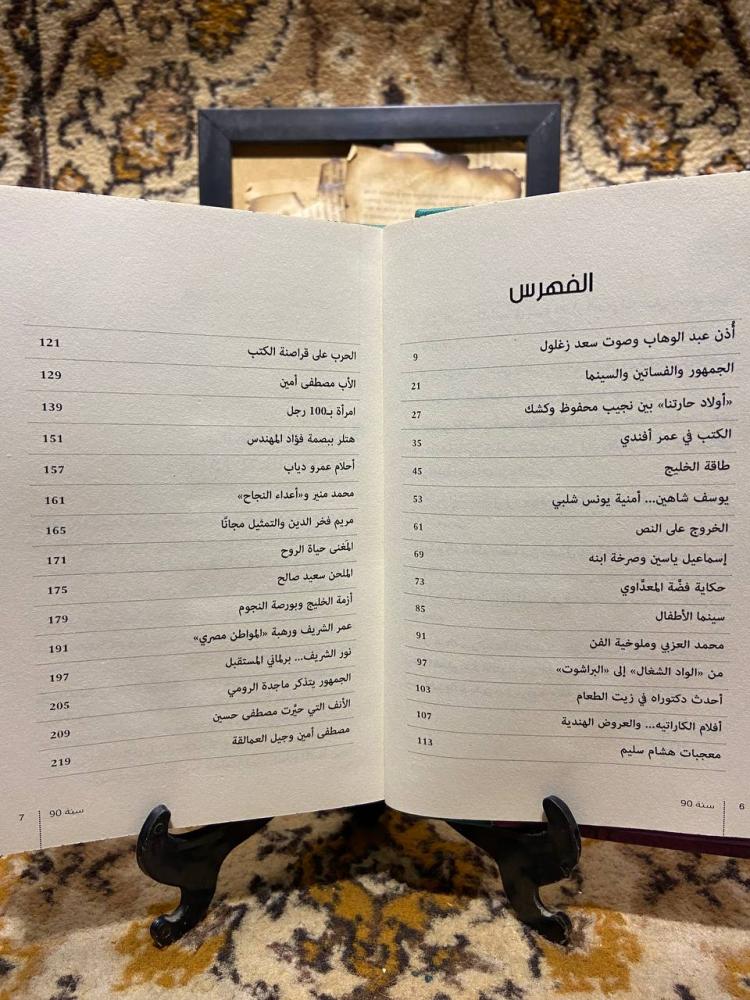 الفهرس
أُذن عبد الوهاب وصوت سعد زغلول 9
الجمهور والفساتين والسينما 21
«أولاد حارتنا» بين نجيب محفوظ وكشك 27
الكتب في عمر أفندي 35
طاقة الخليج 45
يوسف شاهين... أمنية يونس شلبي 53
الخروج على النص 61
إسماعيل ياسين وصرخة ابنه 69
حكاية فضّة المعدّاوي 73
سينما الأطفال 85
محمد العزبي وملوخية الفن 91
من «الواد الشغال» إلى «البراشوت» 97
أحدث دكتوراه في زيت الطعام 103
أفلام الكاراتيه... والعروض الهندية 107
معجبات هشام سليم 113
6 سنة 90
الحرب على قراصنة الكتب 121
الأب مصطفى أمين 129
امرأة بـ100 رجل 139
هتلر ببصمة فؤاد المهندس 151
أحلام عمرو دياب 157
محمد منير و«أعداء النجاح» 161
مريم فخر الدين والتمثيل مجانًا 165
المَغنى حياة الروح 171
الملحن سعيد صالح 175
أزمة الخليج وبورصة النجوم 179
عمر الشريف ورهبة «المواطن مصري» 191
نور الشريف... برلماني المستقبل 197
الجمهور يتذكر ماجدة الرومي 205
الأنف التي حيَّرت مصطفى حسين 209
مصطفى أمين وجيل العمالقة 219
سنة 90 7